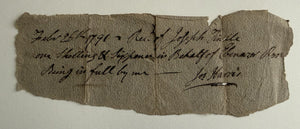 Febr 26th 1791 Rec'd of Joseph Tuttle
one Shilling & Sixpence in Behalf of Ebenezer
Being in full by me —
Jos Harris